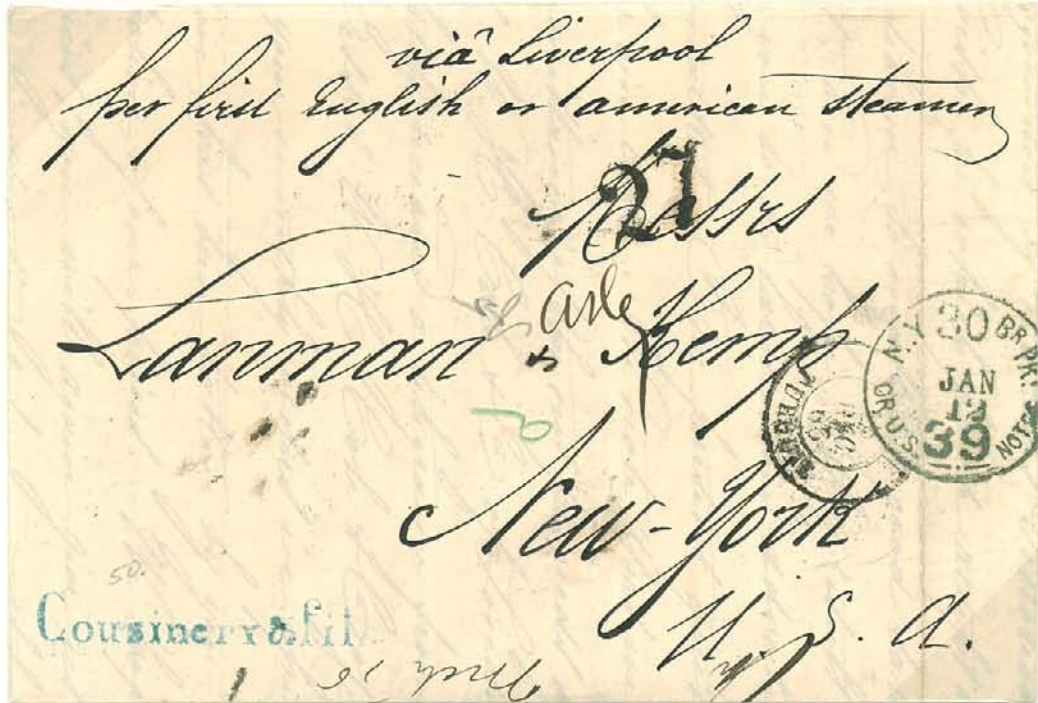 via Liverpool
per first English or american steamer
27
Messrs
Lanman & Kemp
New-York
U. S. A.
N.Y. 30 BR. PKT.
JAN
12
39
OR U.S. NOTES
50.
Cousinery & fil